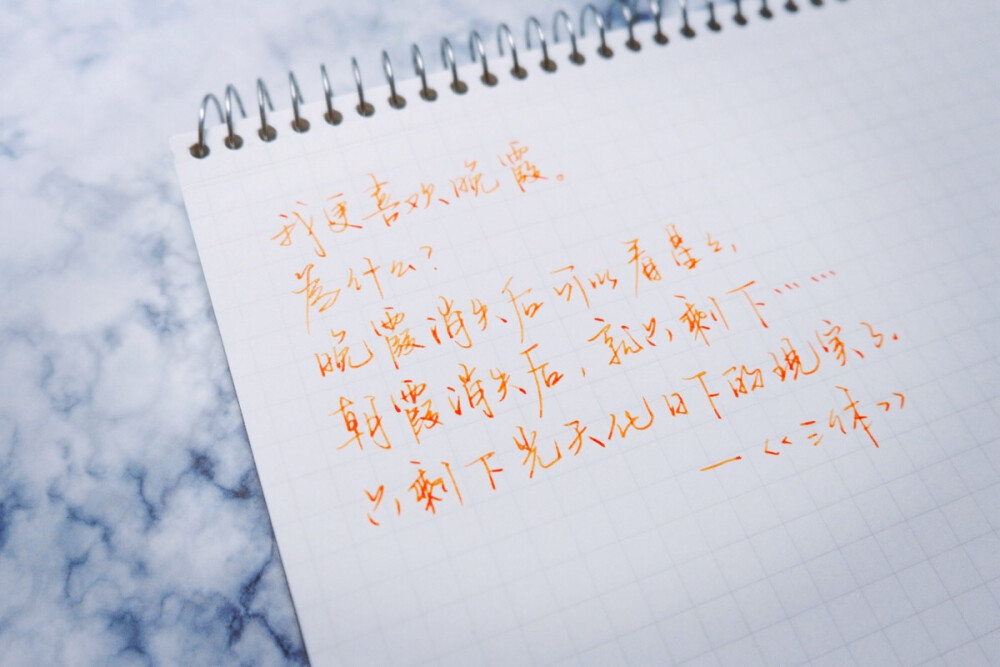 我更喜欢晚霞。
為什么？
晚霞消失后可以看星々，
朝霞消失后，就只剩下……
只剩下光天化日下的現实了。
—《三体》